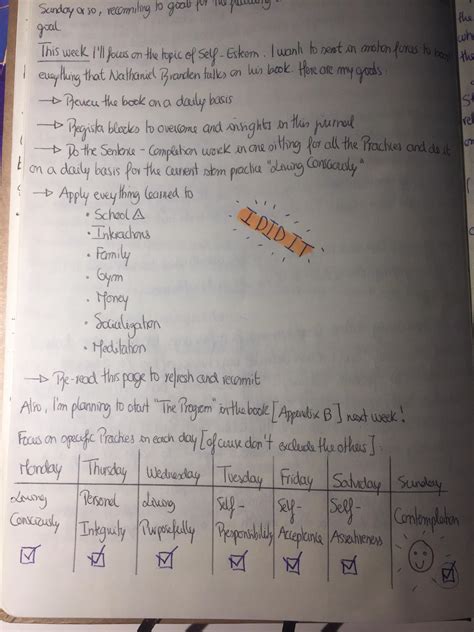 Sunday or so, recommiting to goals for the following
goal.
This week I'll focus on the topic of Self-Esteem. I want to set in motion forces to
everything that Nathaniel Branden talks on his book. Here are my goals:
→ Review the book on a daily basis
→ Register blocks to overcome and insights in this journal
→ Do the Sentence-Completion work in one sitting for all the Practices and do it
on a daily basis for the current storm practice "Living Consciously"
→ Apply everything learned to
• School △
• Interactions
• Family
• Gym
• Money
• Socialization
• Meditation
I DID IT
→ Re-read this page to refresh and recommit
Also, I'm planning to start "The Program" in the book [Appendix B] next week!
Focus on specific Practices in each day [of course don't exclude the others]:
Monday Thursday Wednesday Tuesday Friday Saturday Sunday
Living Personal Living Self- Self- Self- Contemplation
Consciously Integrity Purposefully Responsibility Acceptance Assertiveness